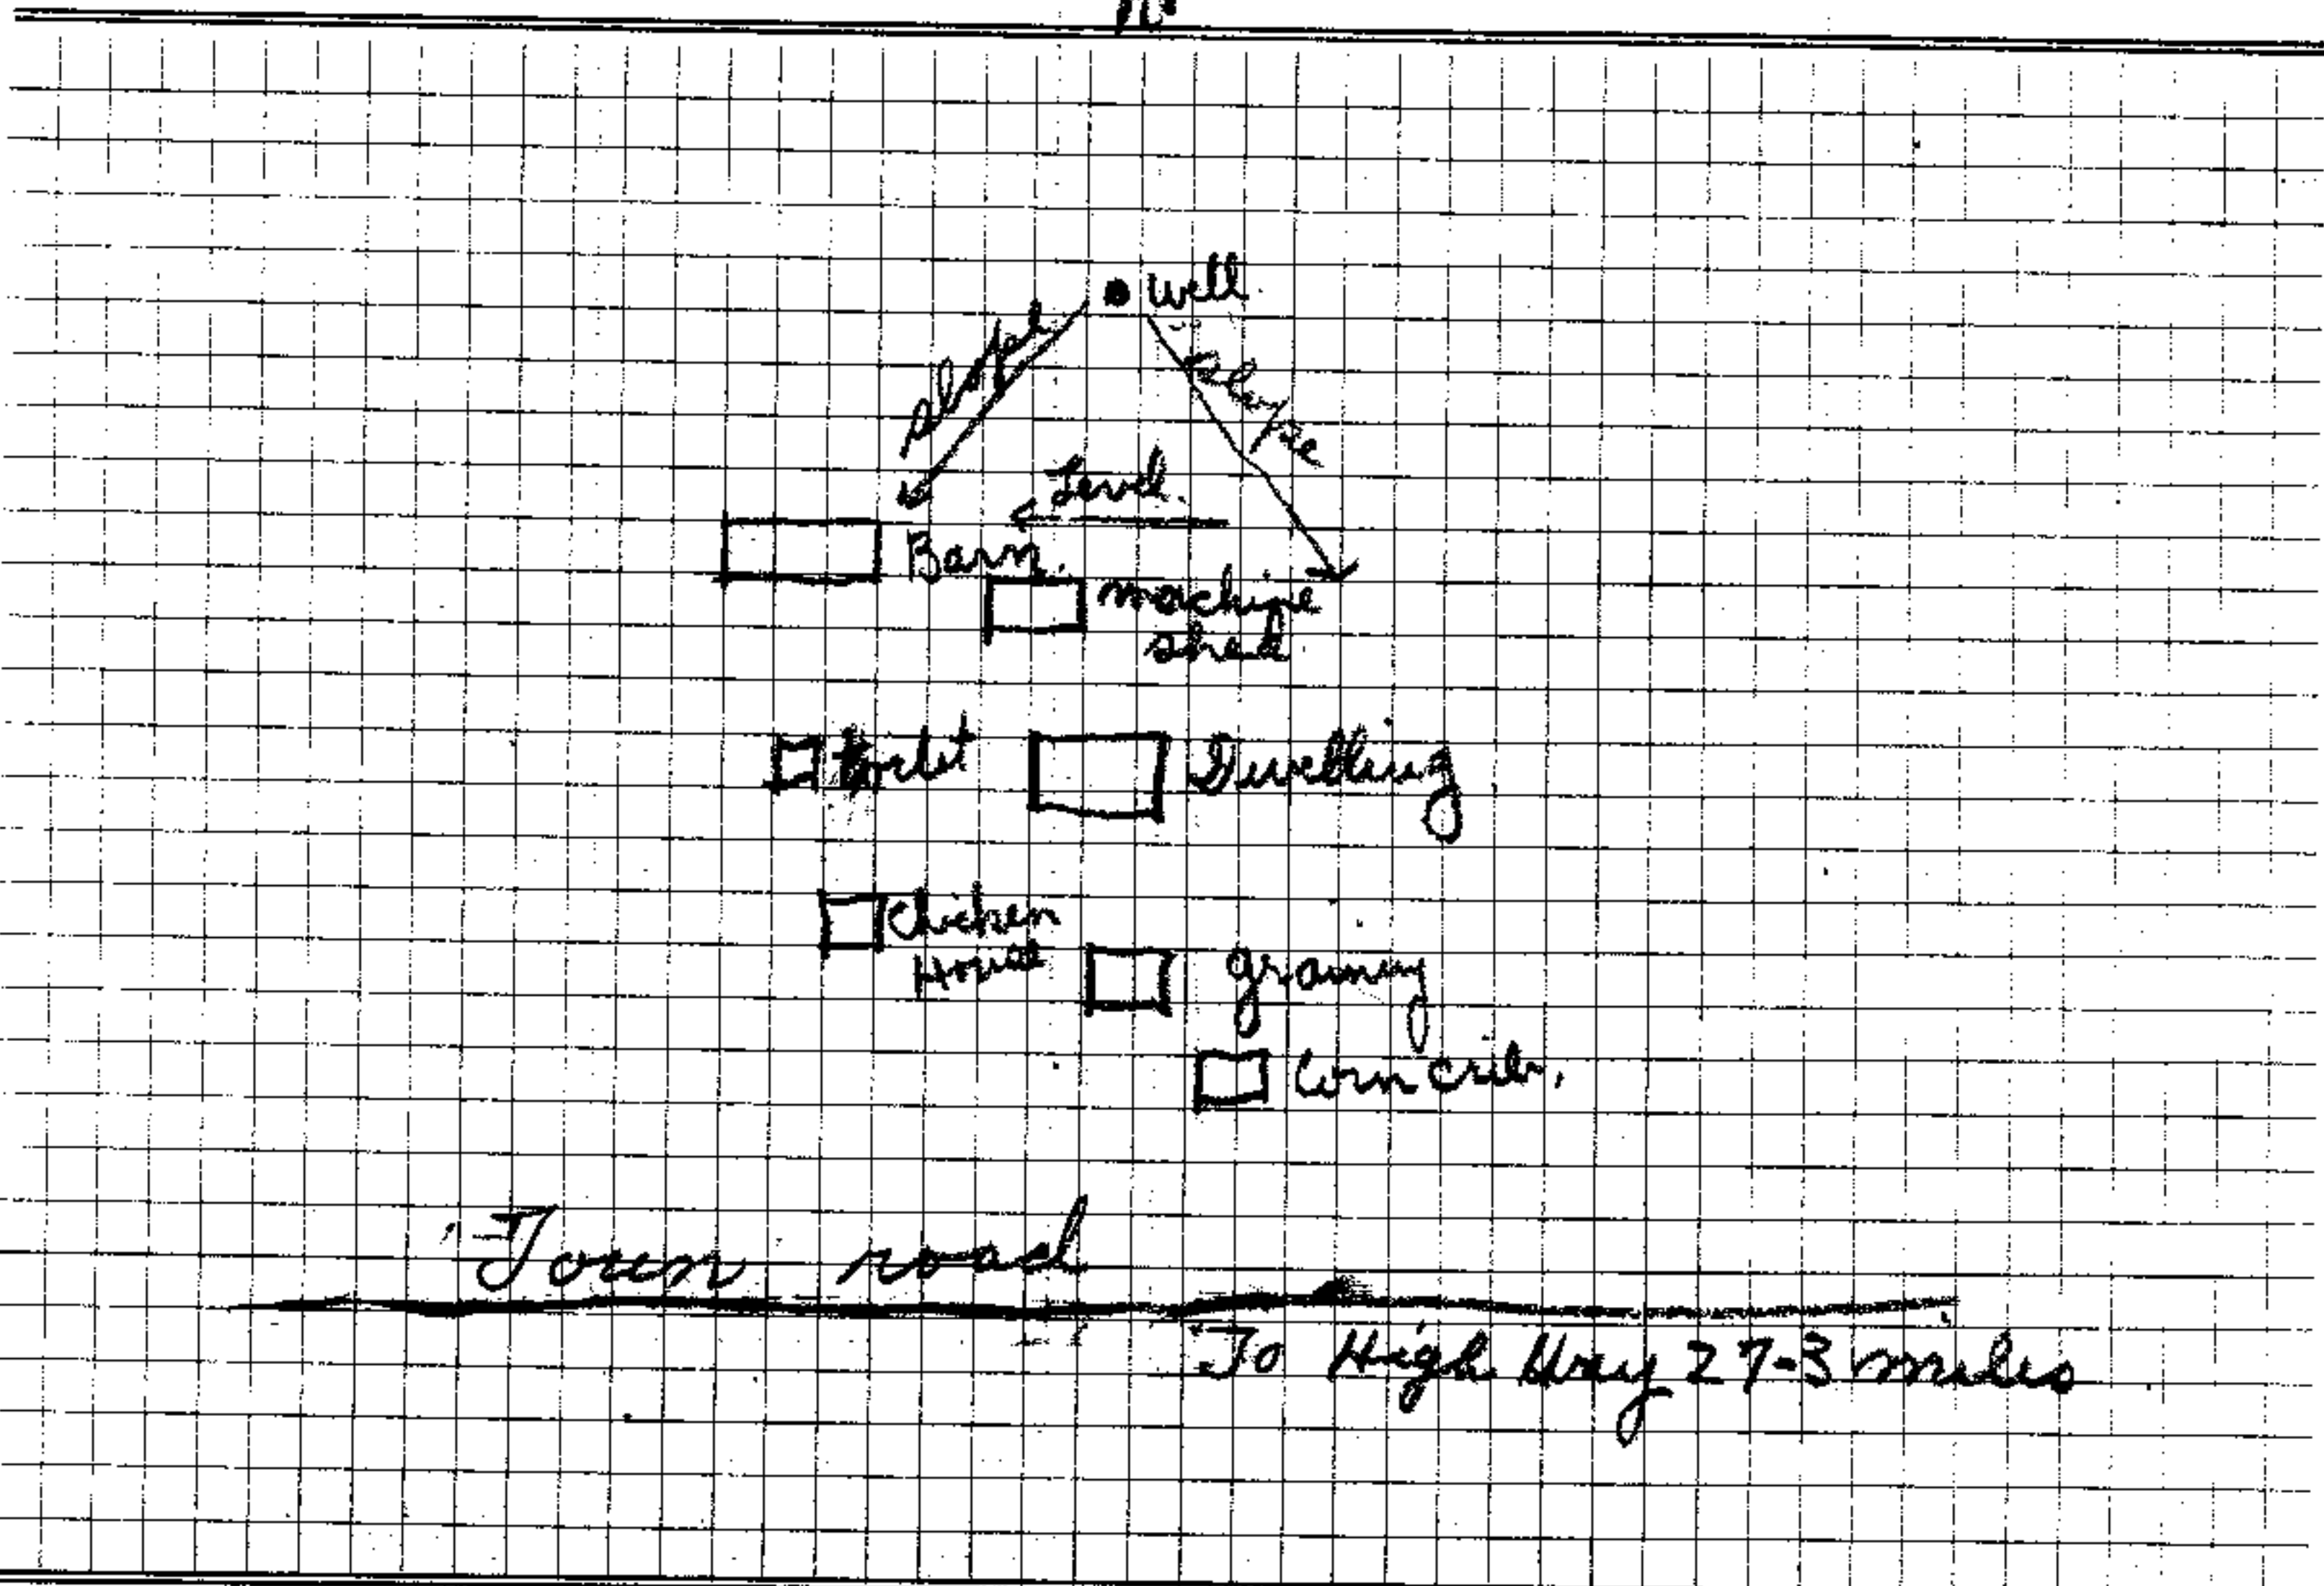 Well
slope
slope
Level.
Barn.
machine
shed
toilet
Dwelling
Chicken
House
granery
Corn crib.
Town road
To High Way 27-3 miles